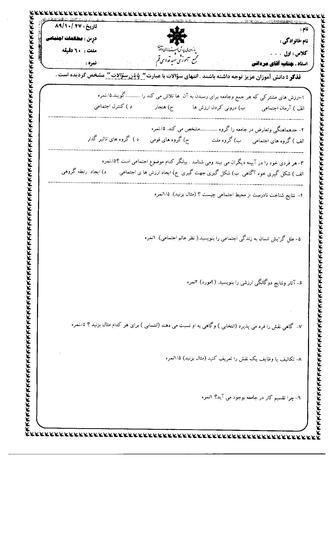 نام :
نام خانوادگی :
کلاس : اول
استاد: جناب آقای مردانی
تاریخ : ۸۹/۱۰/۲۷
درس: مطالعات اجتماعی
مدت : ۶۰ دقیقه
نمره :
تذکر : دانش آموزان عزیز توجه داشته باشند . انتهای سؤالات با عبارت " پایان سؤالات " مشخص گردیده است.
۱- ارزش های مشترکی که هر جمع وجامعه برای رسیدن به آن ها تلاش می کند را ........ گویند.۰/۵نمره
الف ) آرمان اجتماعی ب) درونی کردن ارزش ها ج) هنجار د ) کنترل اجتماعی
۲- حدهماهنگی وتعارض در جامعه را گروه ........مشخص می کند. ۰/۵نمره
الف ) گروه های اجتماعی ب) گروه ملت ج) گروه های قومی د ) گروه های تاثیر گذار
۳- هر فردی خود را در آیینه دیگران می بیند ومی شناسد . بیانگر کدام موضوع اجتماعی است ؟۰/۵نمره
الف ) شکل گیری خود آگاهی ب) شکل گیری جهت گیری ج) ایجاد ارزش ها ی اجتماعی د) ایجاد رابطه گروهی
۴- نتایج شناخت نادرست از محیط اجتماعی چیست ؟ (مثال بزنید )۱/۵نمره
۵- علل گرایش انسان به زندگی اجتماعی را بنویسید.( نظر عالم اجتماعی) ۱نمره
۶- آثار ونتایج دوگانگی ارزشی را بنویسید. (۴مورد) ۲نمره
۷- گاهی نقش را فرد می پذیرد (انتخابی ) وگاهی به او نسبت می دهند (انتسابی ) برای هر کدام مثال بزنید ؟ ۰/۵نمره
۸- تکالیف یا وظایف یک نقش را تعریف کنید (مثال بزنید )۱/۵نمره
۹- چرا تقسیم کار در جامعه بوجود می آید؟ ۱نمره